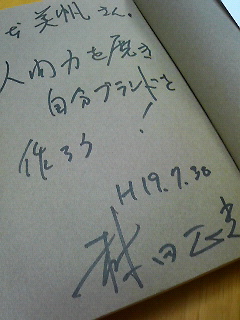 美帆さん。
人間力を磨き
自分ブランドを
作ろう!
H19.7.30